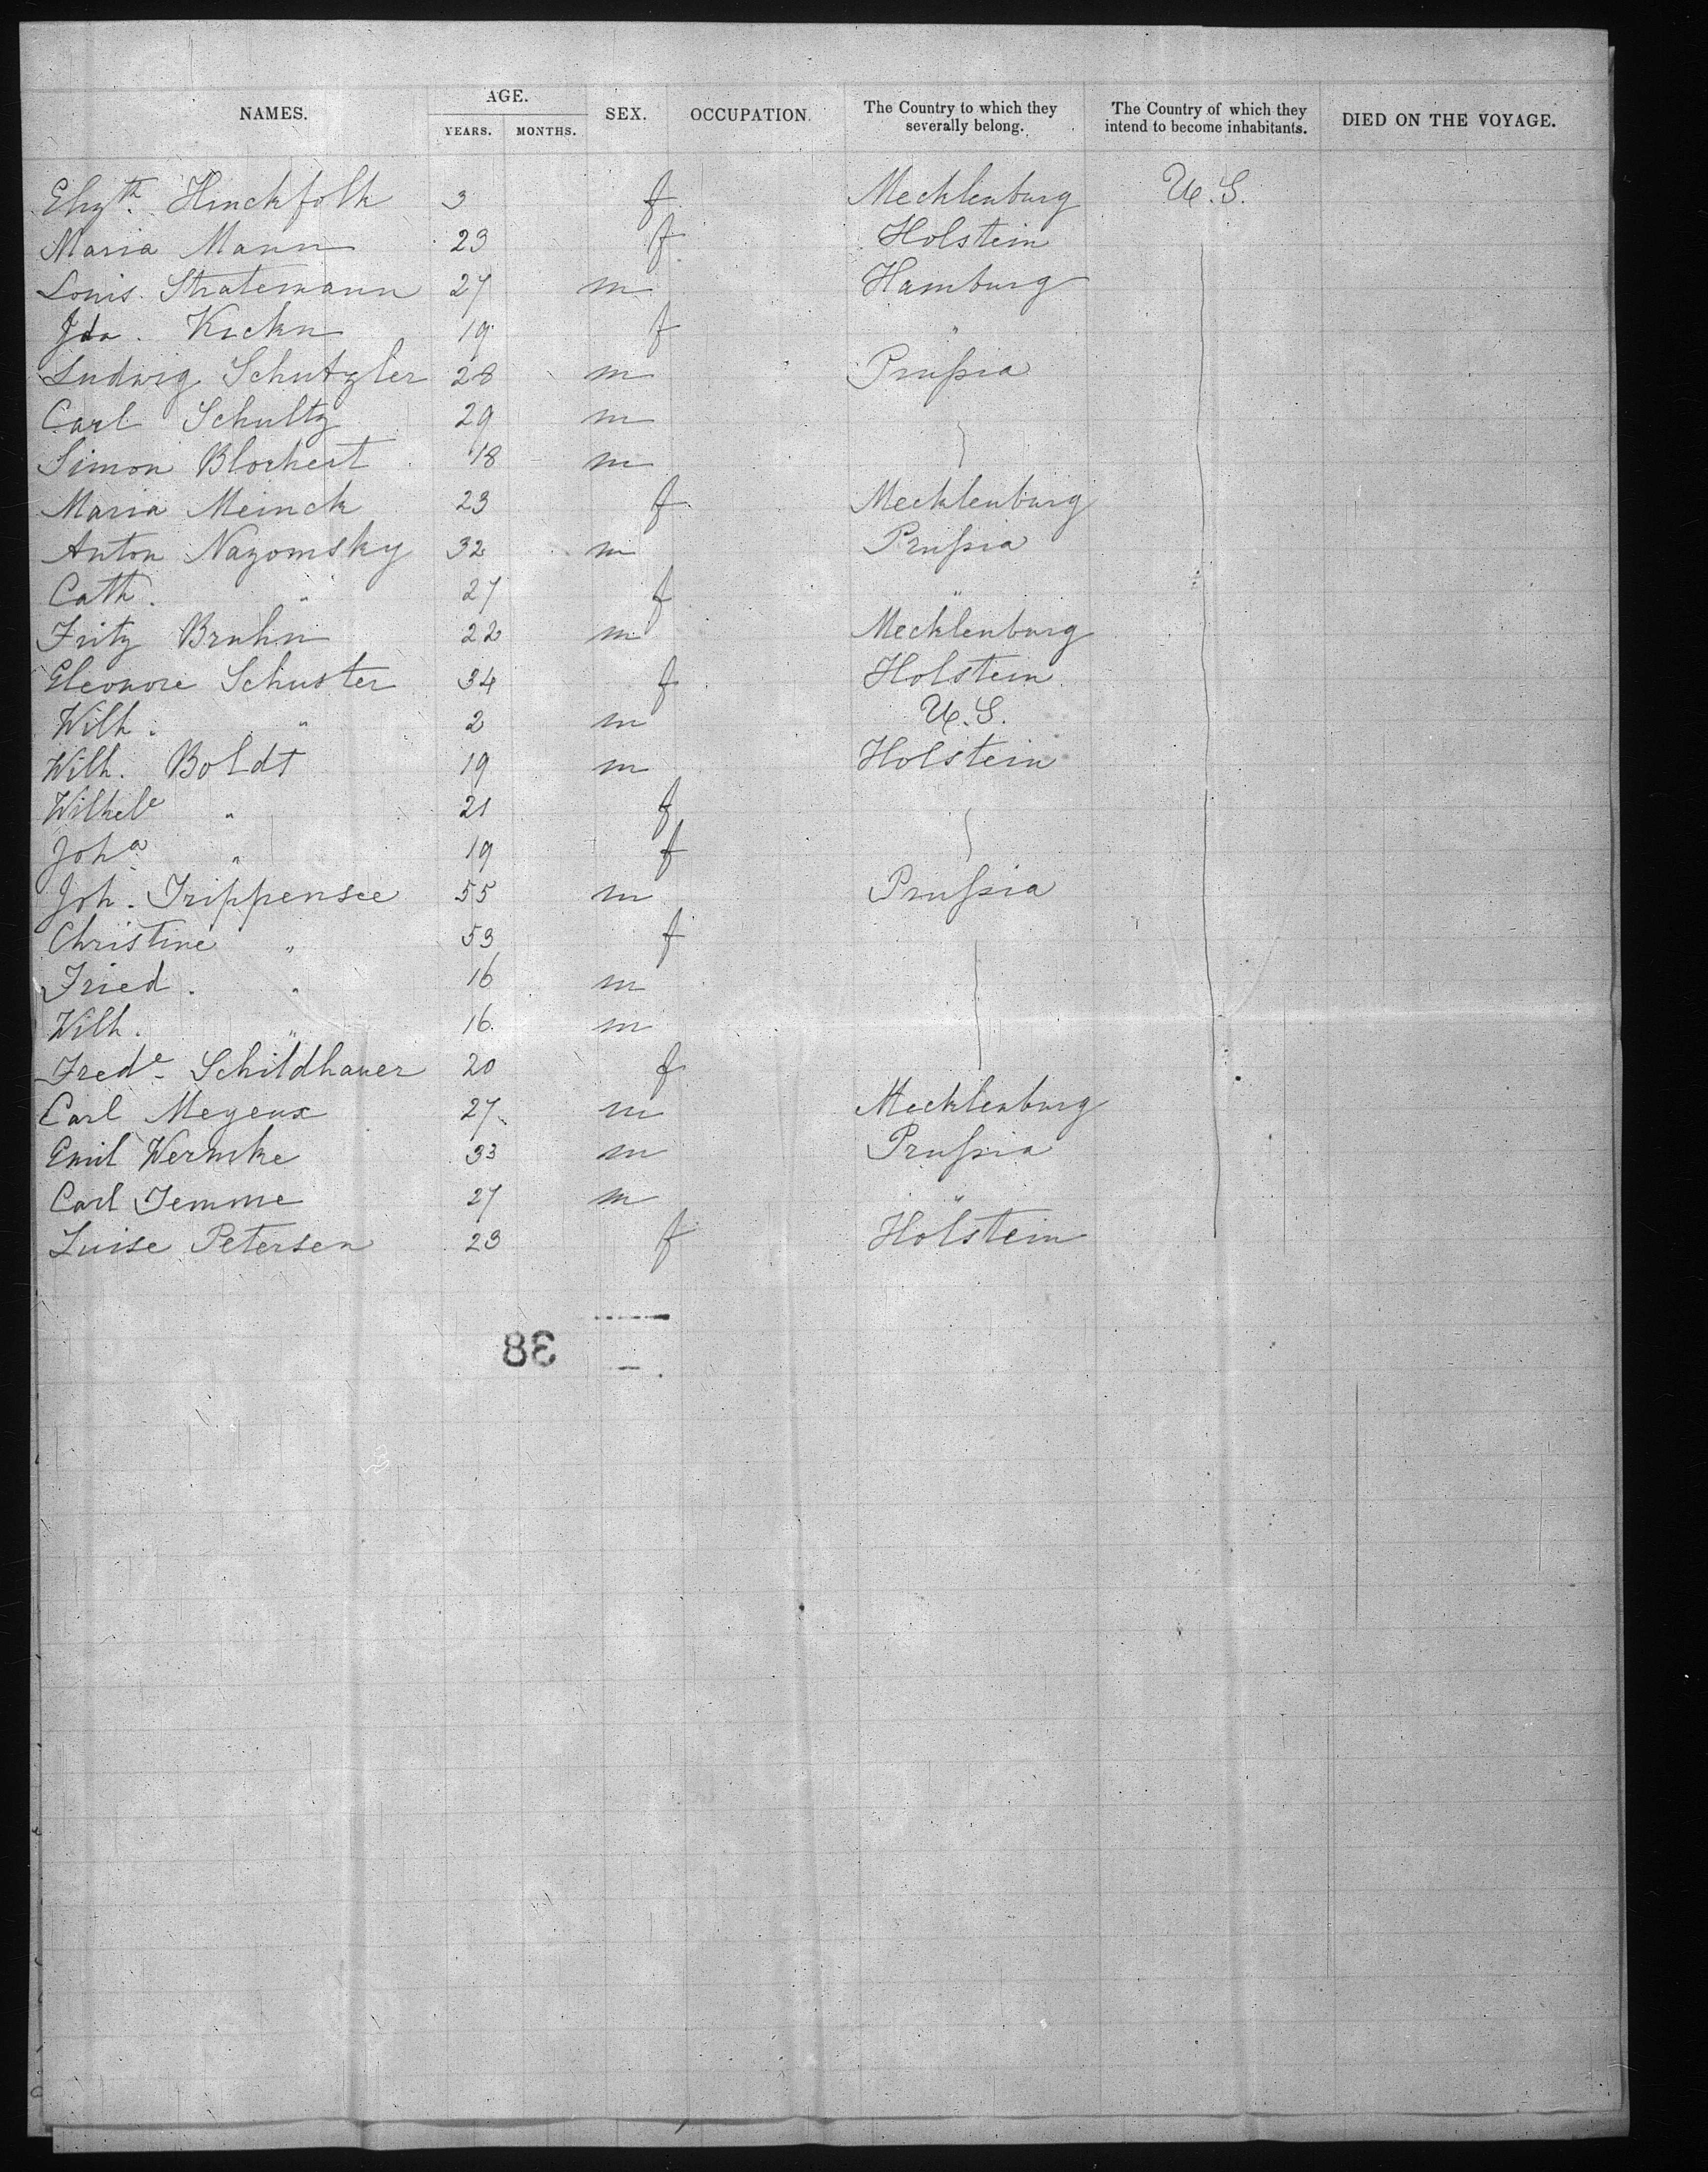 NAMES. AGE. YEARS. MONTHS. SEX. OCCUPATION. The Country to which they severally belong. The Country of which they intend to become inhabitants. DIED ON THE VOYAGE.
Elizth. Hinckfoth 3 f Mecklenburg U.S.
Maria Mann 23 f Holstein
Louis Stratemann 27 m Hamburg
Ida. 19 f "
Ludwig Schutzler 28 m Prussia
Carl Schultz 29 m
Simon Blochert 18 m
Maria Meinck 23 f Mecklenburg
Anton Nazomsky 32 m Prussia
Cath. " 27 f "
Fritz Bruhn 22 m Mecklenburg
Eleonore Schuster 34 f Holstein
Wilh. " 2 m U.S.
Wilh. Boldt 19 m Holstein
Wilhele " 21 f
Joha " 19 f
Joh. Trippensee 55 m Prussia
Christine " 53 f
Fried. " 16 m
Wilh. " 16 m
Frede Schildhauer 20 f
Carl 27 m Mecklenburg
Emil Wermke 33 m Prussia
Carl Temme 27 m "
Luise Petersen 23 f Holstein
38